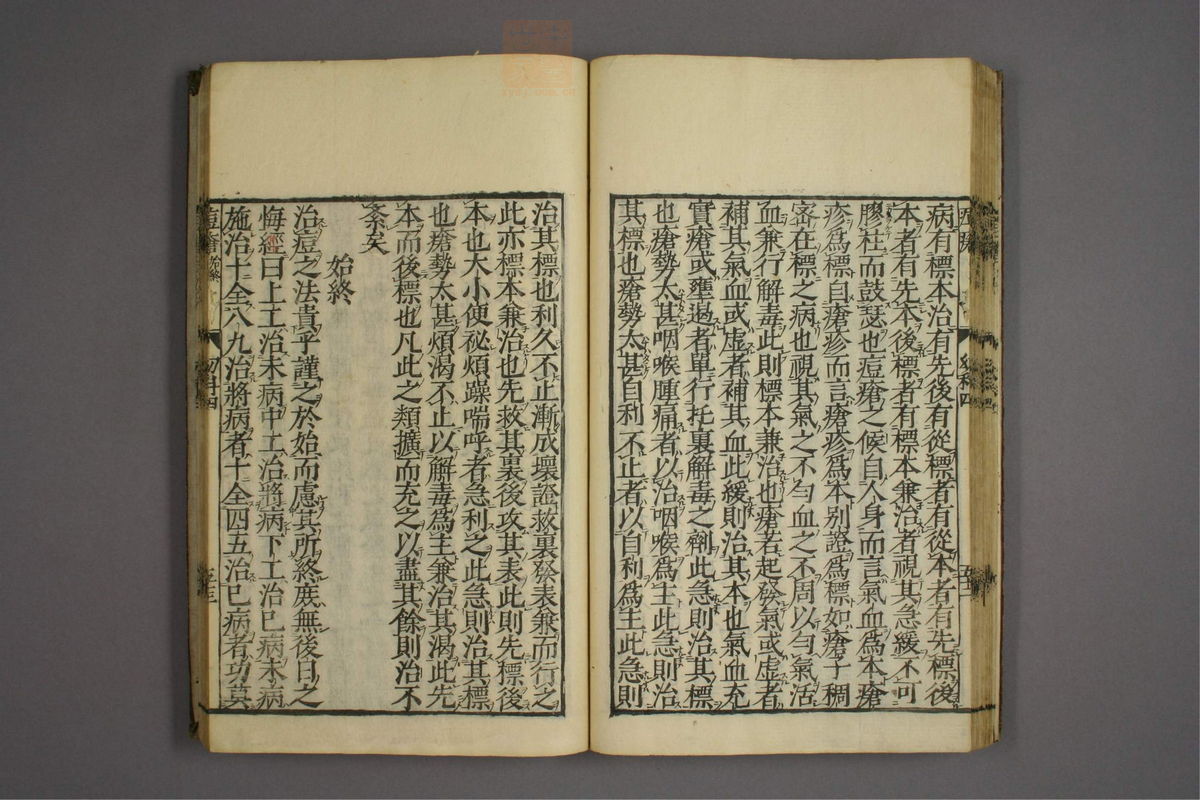 病有標本治有先後有從標者有從本者有先標後
本者有先本後標者有標本兼治者視其急緩不可
膠柱而鼓瑟也痘瘡之候自人身而言氣血爲本瘡
疹爲標自瘡疹而言瘡疹爲本別證爲標如瘡子稠
密在標之病也視其氣之不勻血之不周以勻氣活
血兼行解毒此則標本兼治也瘡若起發氣或虛者
補其氣血或虛者補其血此緩則治其本也氣血充
實瘡或壅遏者單行托裏解毒之劑此急則治其標
也瘡勢太甚咽喉腫痛者以治咽喉爲主此急則治
其標也瘡勢太甚自利不止者以自利爲主此急則
治其標也利久不止漸成壞證救裏發表兼而行之
此亦標本兼治也先救其裏後攻其表此則先標後
本也大小便祕煩躁喘呼者急利之此急則治其標
也瘡勢太甚煩渴不止以解毒爲主兼治其渴此先
本而後標也凡此之類擴而充之以盡其餘則治不
紊矣
始終
治痘之法貴乎謹之於始而慮其所終庶無後日之
悔經曰上工治未病中工治將病下工治已病未病
施治十全八九治將病者十全四五治已病者功莫
痘瘡 始終